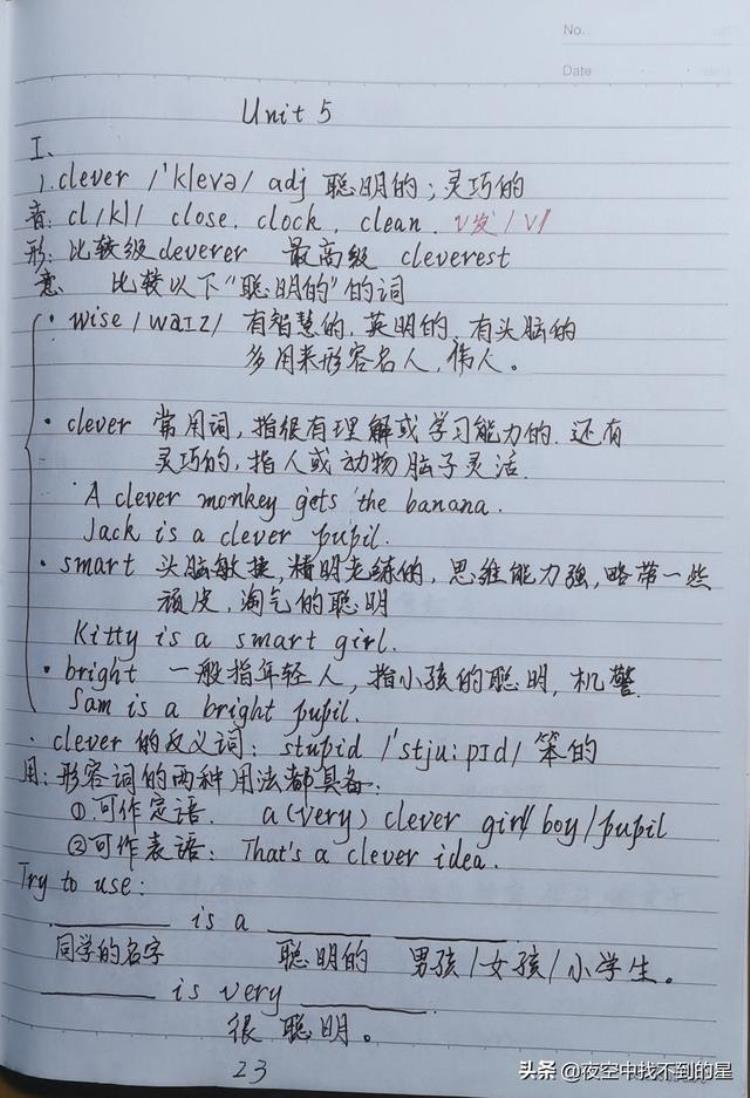 No.
Date
Unit 5
I、
1. clever /'klevə/ adj 聪明的；灵巧的
音: cl /kl/ close. clock. clean. v发/v/
形: 比较级cleverer 最高级 cleverest
意 比较以下“聪明的”的词
· wise /waɪz/ 有智慧的. 英明的、有头脑的
多用来形容名人, 伟人。
· clever 常用词, 指很有理解或学习能力的. 还有
灵巧的, 指人或动物脑子灵活.
A clever monkey gets the banana.
Jack is a clever pupil.
· smart 头脑敏捷, 精明老练的, 思维能力强, 略带一些
顽皮, 淘气的聪明
Kitty is a smart girl.
· bright 一般指年轻人, 指小孩的聪明, 机警.
Sam is a bright pupil.
· clever 的反义词: stupid /'stju:pɪd/ 笨的
用: 形容词的两种用法都具备:
①.可作定语. a (very) clever girl/boy/pupil
②可作表语: That's a clever idea.
Try to use:
______ is a ______ ______
同学的名字 聪明的 男孩/女孩/小学生。
______ is very ______.
很 聪明。
23
头条 @夜空中找不到的星